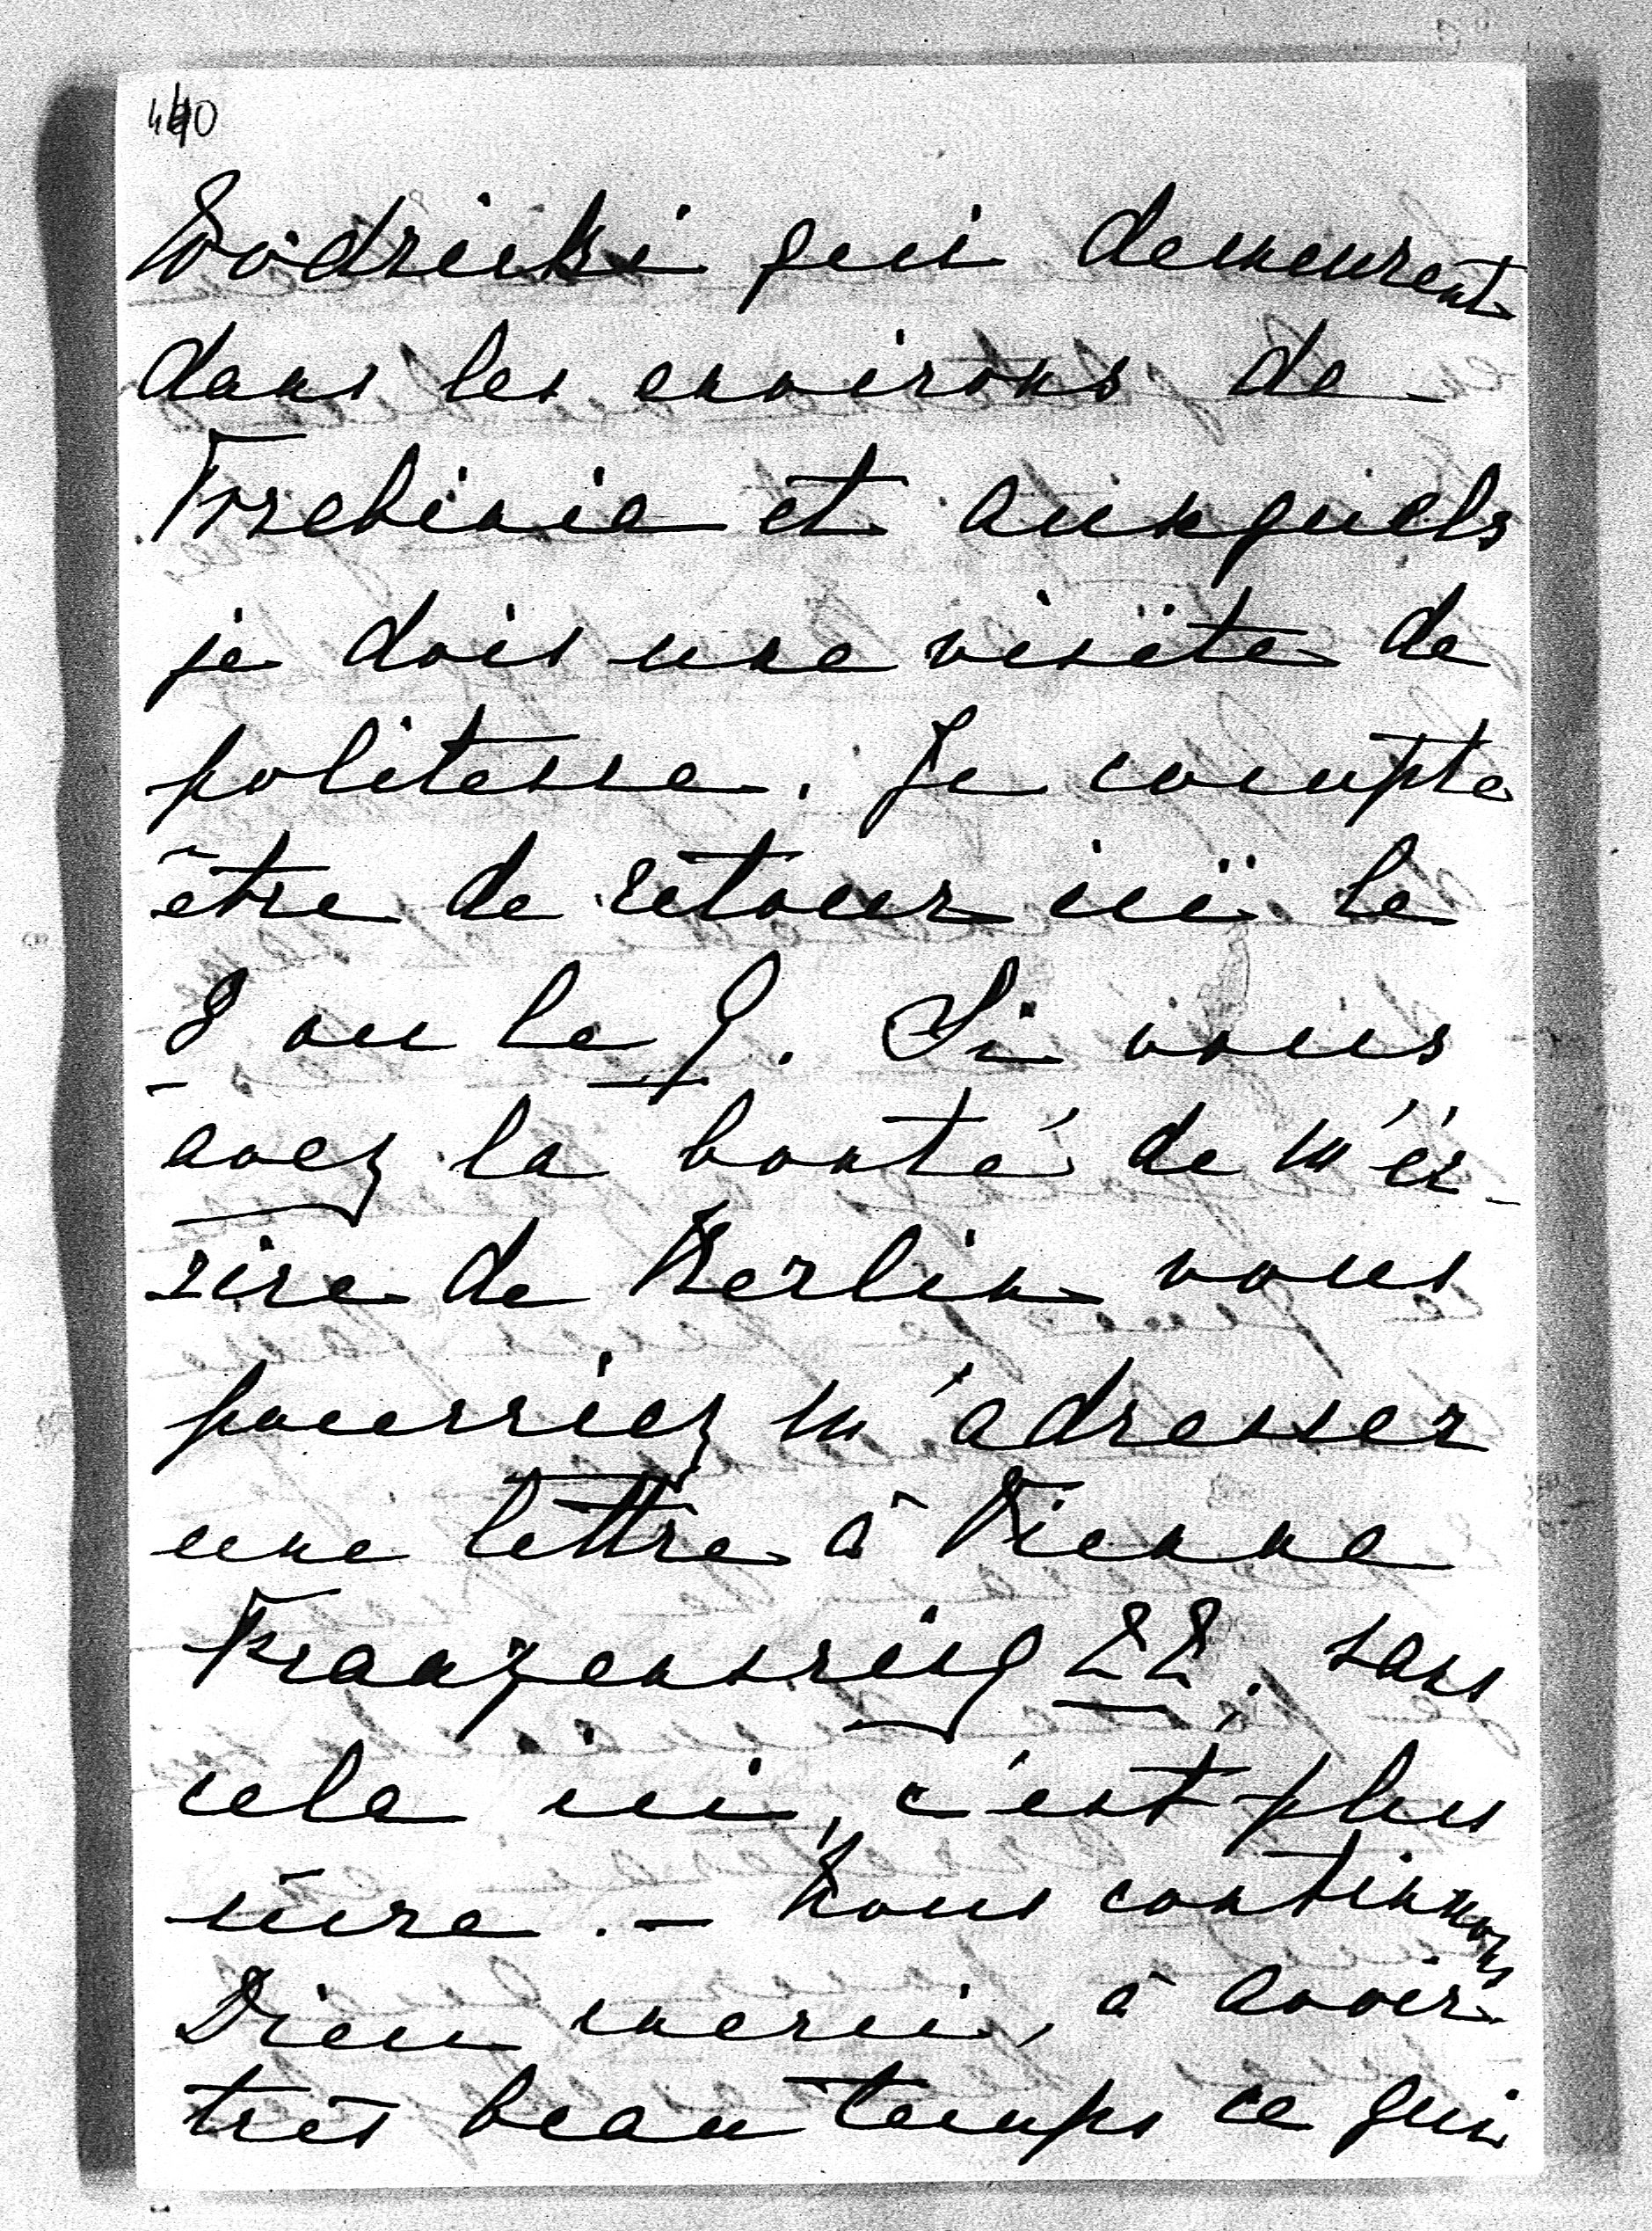 440
Wodzicki qui demeurent
dans les environs de
Trzebinia et auxquels
je dois une visite de
politesse. Je compte
être de retour ici le
8 ou le 9. Si vous
avez la bonté de m'éc-
rire de Berlin vous
pourriez m'adresser
une lettre à Vienne
Franzensring 22, sans
cela ici, c'est plus
sûre. – Nous continuons
Dieu merci, à avoir
très beau temps ce qui